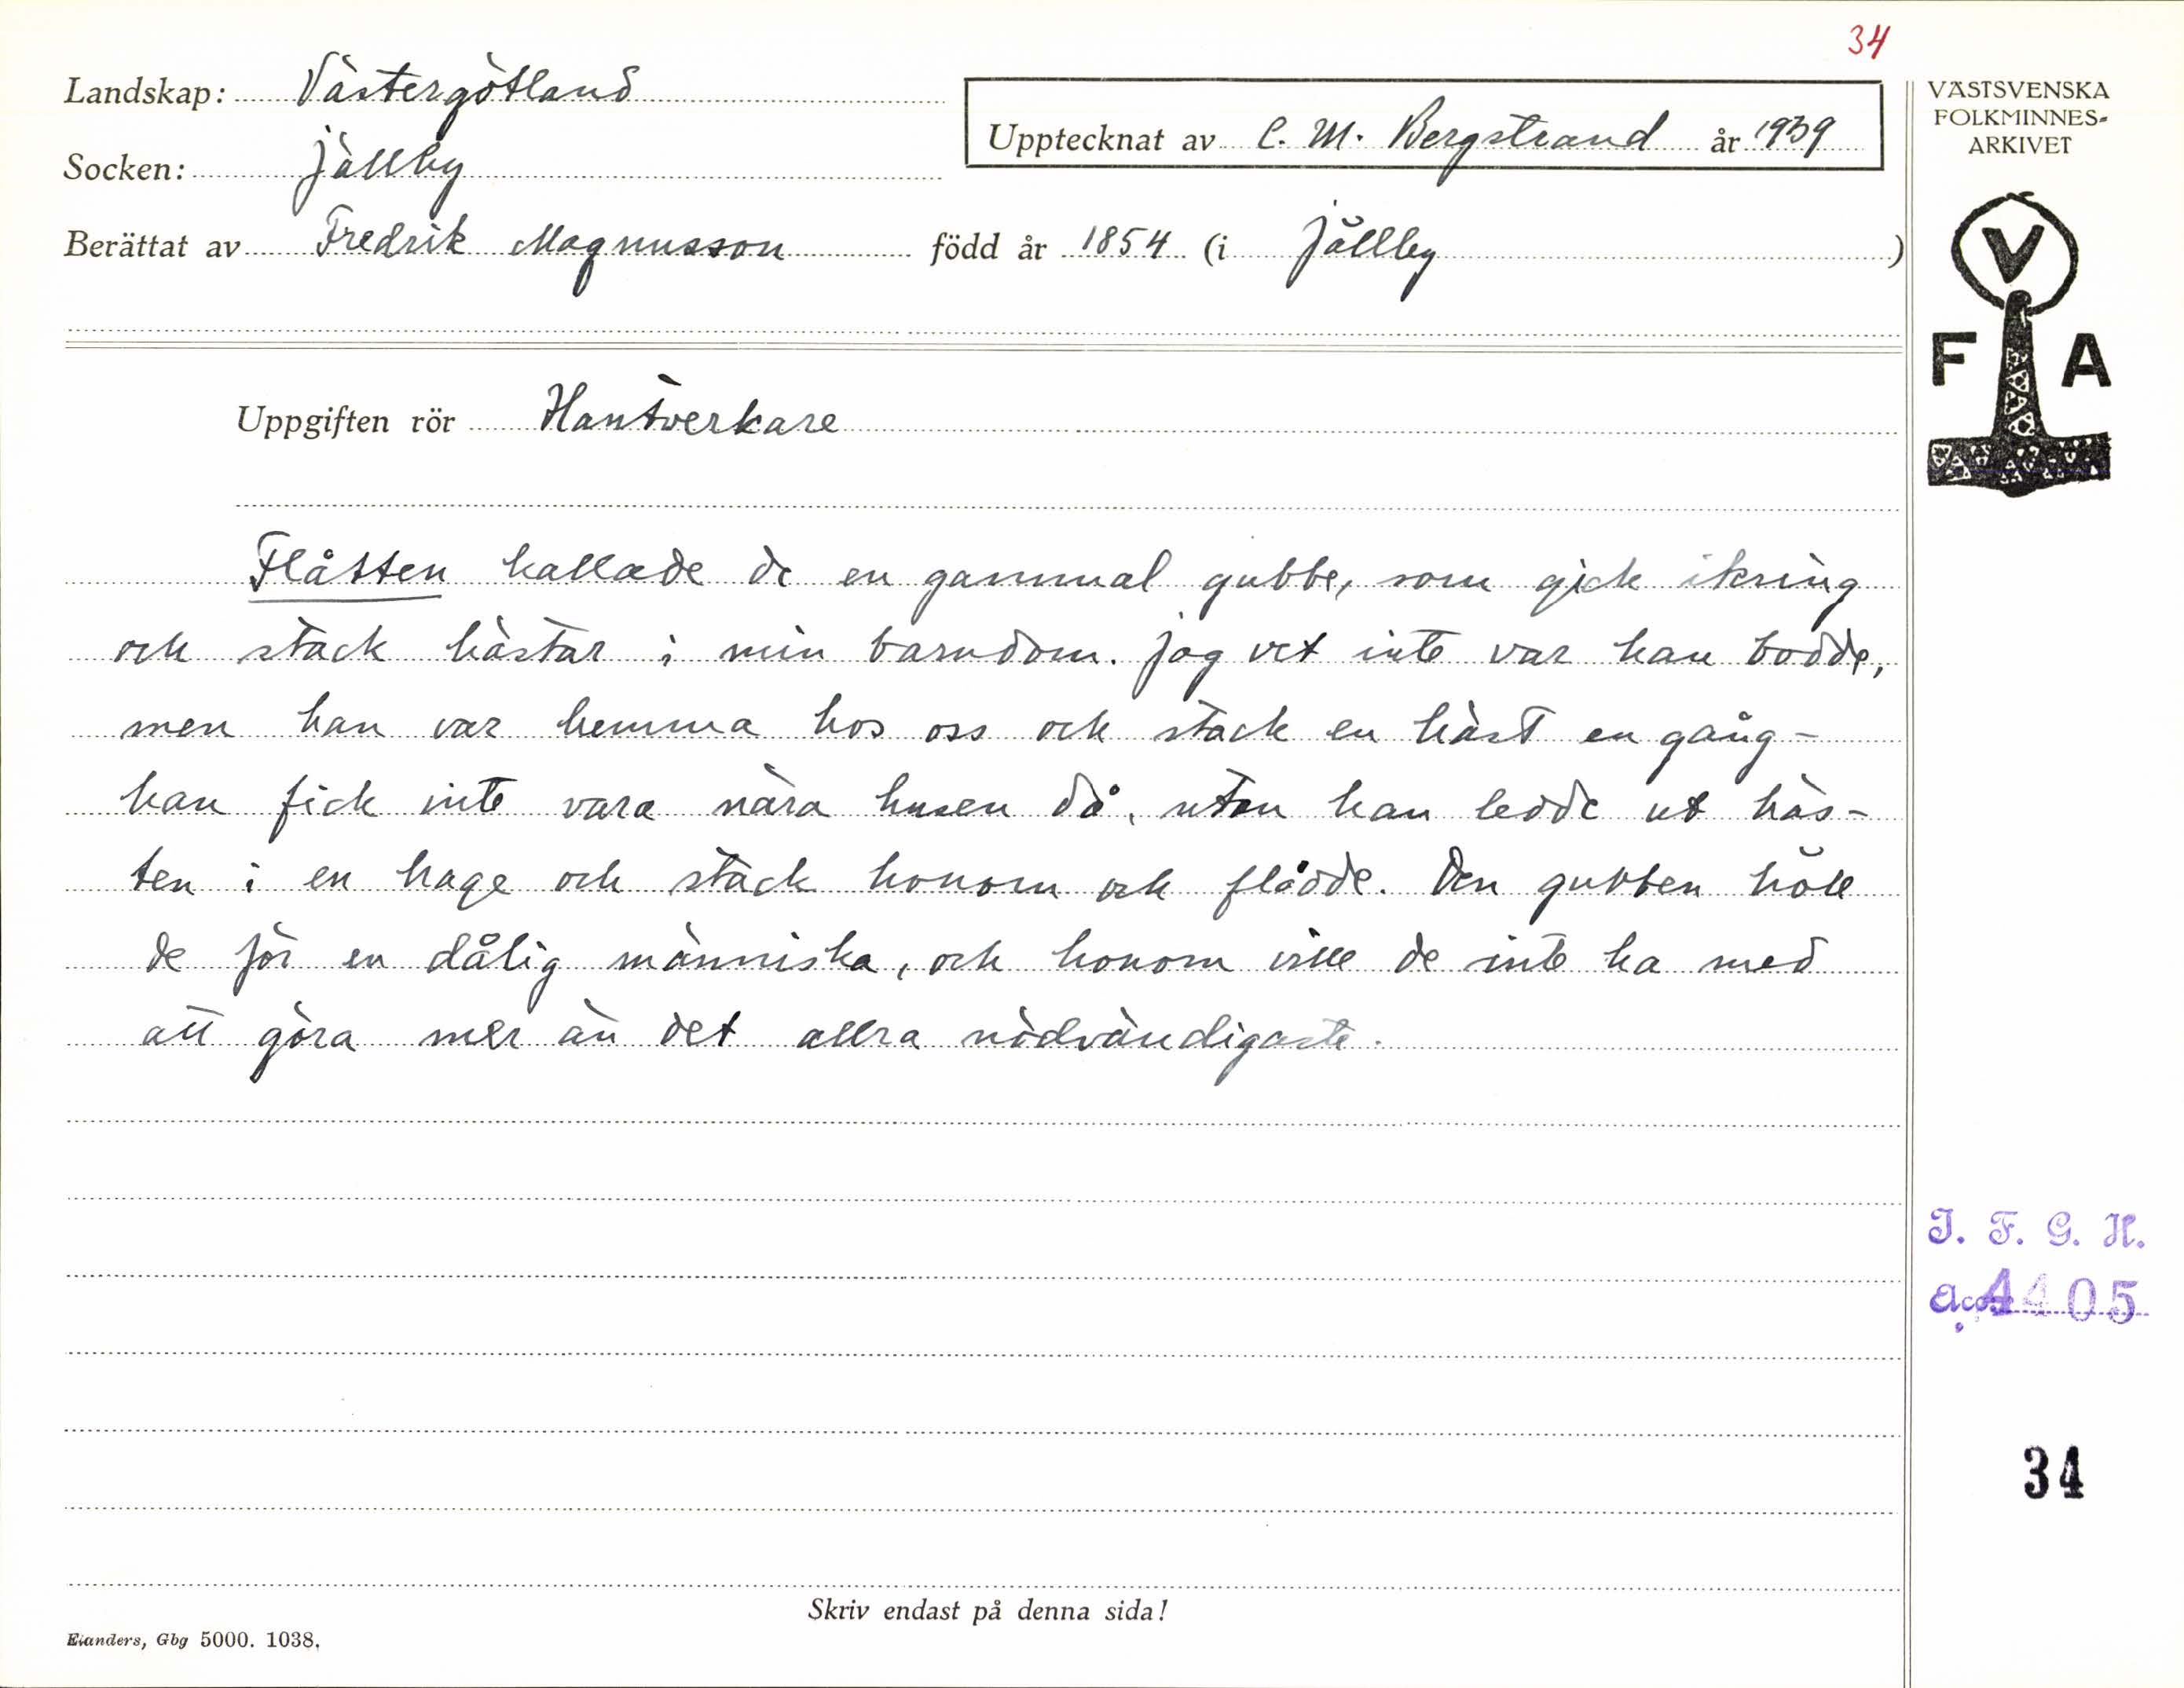 34
Landskap: Västergötland
Upptecknat av C. M. Bergstrand år 1939
Socken: Jällby
Berättat av Fredrik Magnusson född år 1854 (i Jällby)
Uppgiften rör Hantverkare
Flåtten kallade de en gammal gubbe, som gick ikring
och stack hästar i min barndom. Jag vet inte var han bodde,
men han var hemma hos oss och stack en häst en gång –
han fick inte vara nära husen då, utan han ledde ut häs-
ten i en hage och stack honom och flådde. Den gubben höll
de för en dålig människa, och honom ville de inte ha med
att göra mer än det allra nödvändigaste.
Skriv endast på denna sida!
Elanders, Gbg 5000. 1038.
VÄSTSVENSKA
FOLKMINNES-
ARKIVET
V
F A
I. F. G. H.
Acc. 4405
34